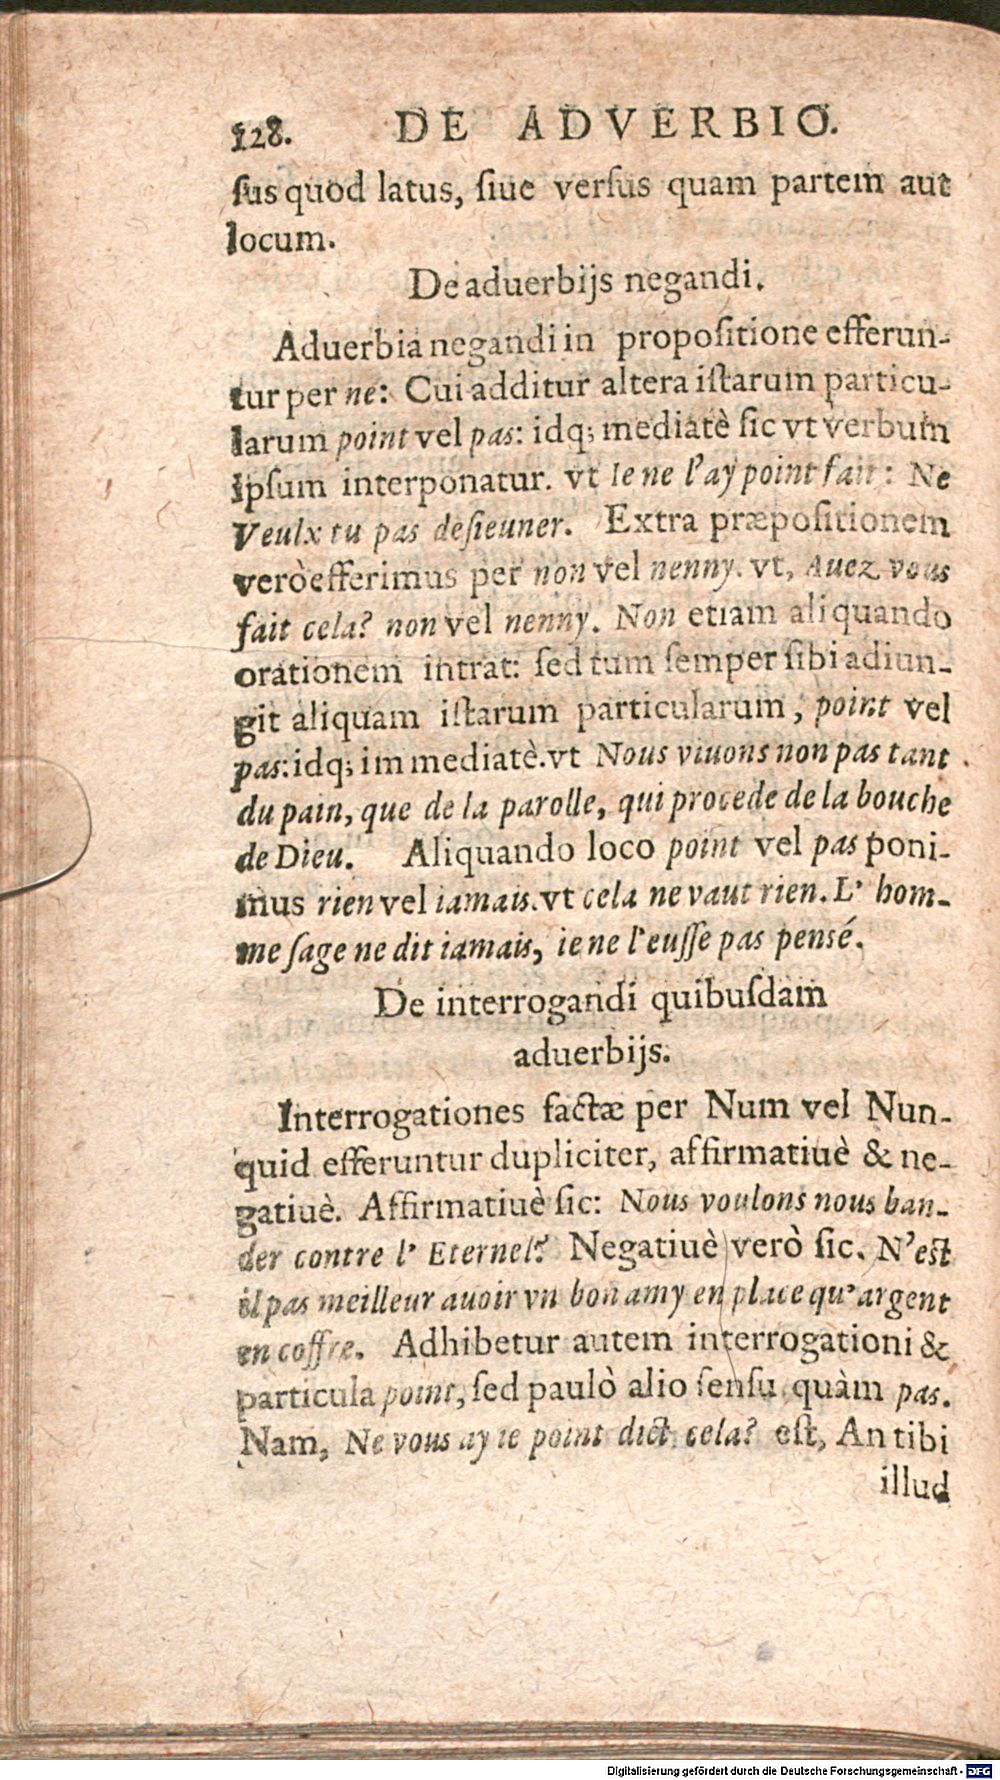 128. DE ADVERBIO.
ſus quod latus, ſiue verſus quam partem aut
locum.
De aduerbijs negandi.
Aduerbia negandi in propoſitione efferun-
tur per ne: Cui additur altera iſtarum particu-
larum point vel pas: idq; mediatè ſic vt verbum
ipſum interponatur. vt Ie ne l'ay point fait: Ne
Veulx tu pas deſieuner. Extra præpoſitionem
verò efferimus per non vel nenny. vt, Auez vous
fait cela? non vel nenny. Non etiam aliquando
orationem intrat: ſed tum ſemper ſibi adiun-
git aliquam iſtarum particularum, point vel
pas: idq; immediatè. vt Nous viuons non pas tant
du pain, que de la parolle, qui procede de la bouche
de Dieu. Aliquando loco point vel pas poni-
mus rien vel iamais. vt cela ne vaut rien. L' hom-
me ſage ne dit iamais, ie ne l'euſſe pas pensé.
De interrogandi quibuſdam
aduerbijs.
Interrogationes factæ per Num vel Nun-
quid efferuntur dupliciter, affirmatiuè & ne-
gatiuè. Affirmatiuè ſic: Nous voulons nous ban-
der contre l' Eternel? Negatiuè verò ſic. N'eſt
il pas meilleur auoir vn bon amy en place qu'argent
en coffre. Adhibetur autem interrogationi &
particula point, ſed paulò alio ſenſu quàm pas.
Nam, Ne vous ay ie point dict cela? eſt, An tibi
illud
Digitalisierung gefördert durch die Deutsche Forschungsgemeinschaft - DFG